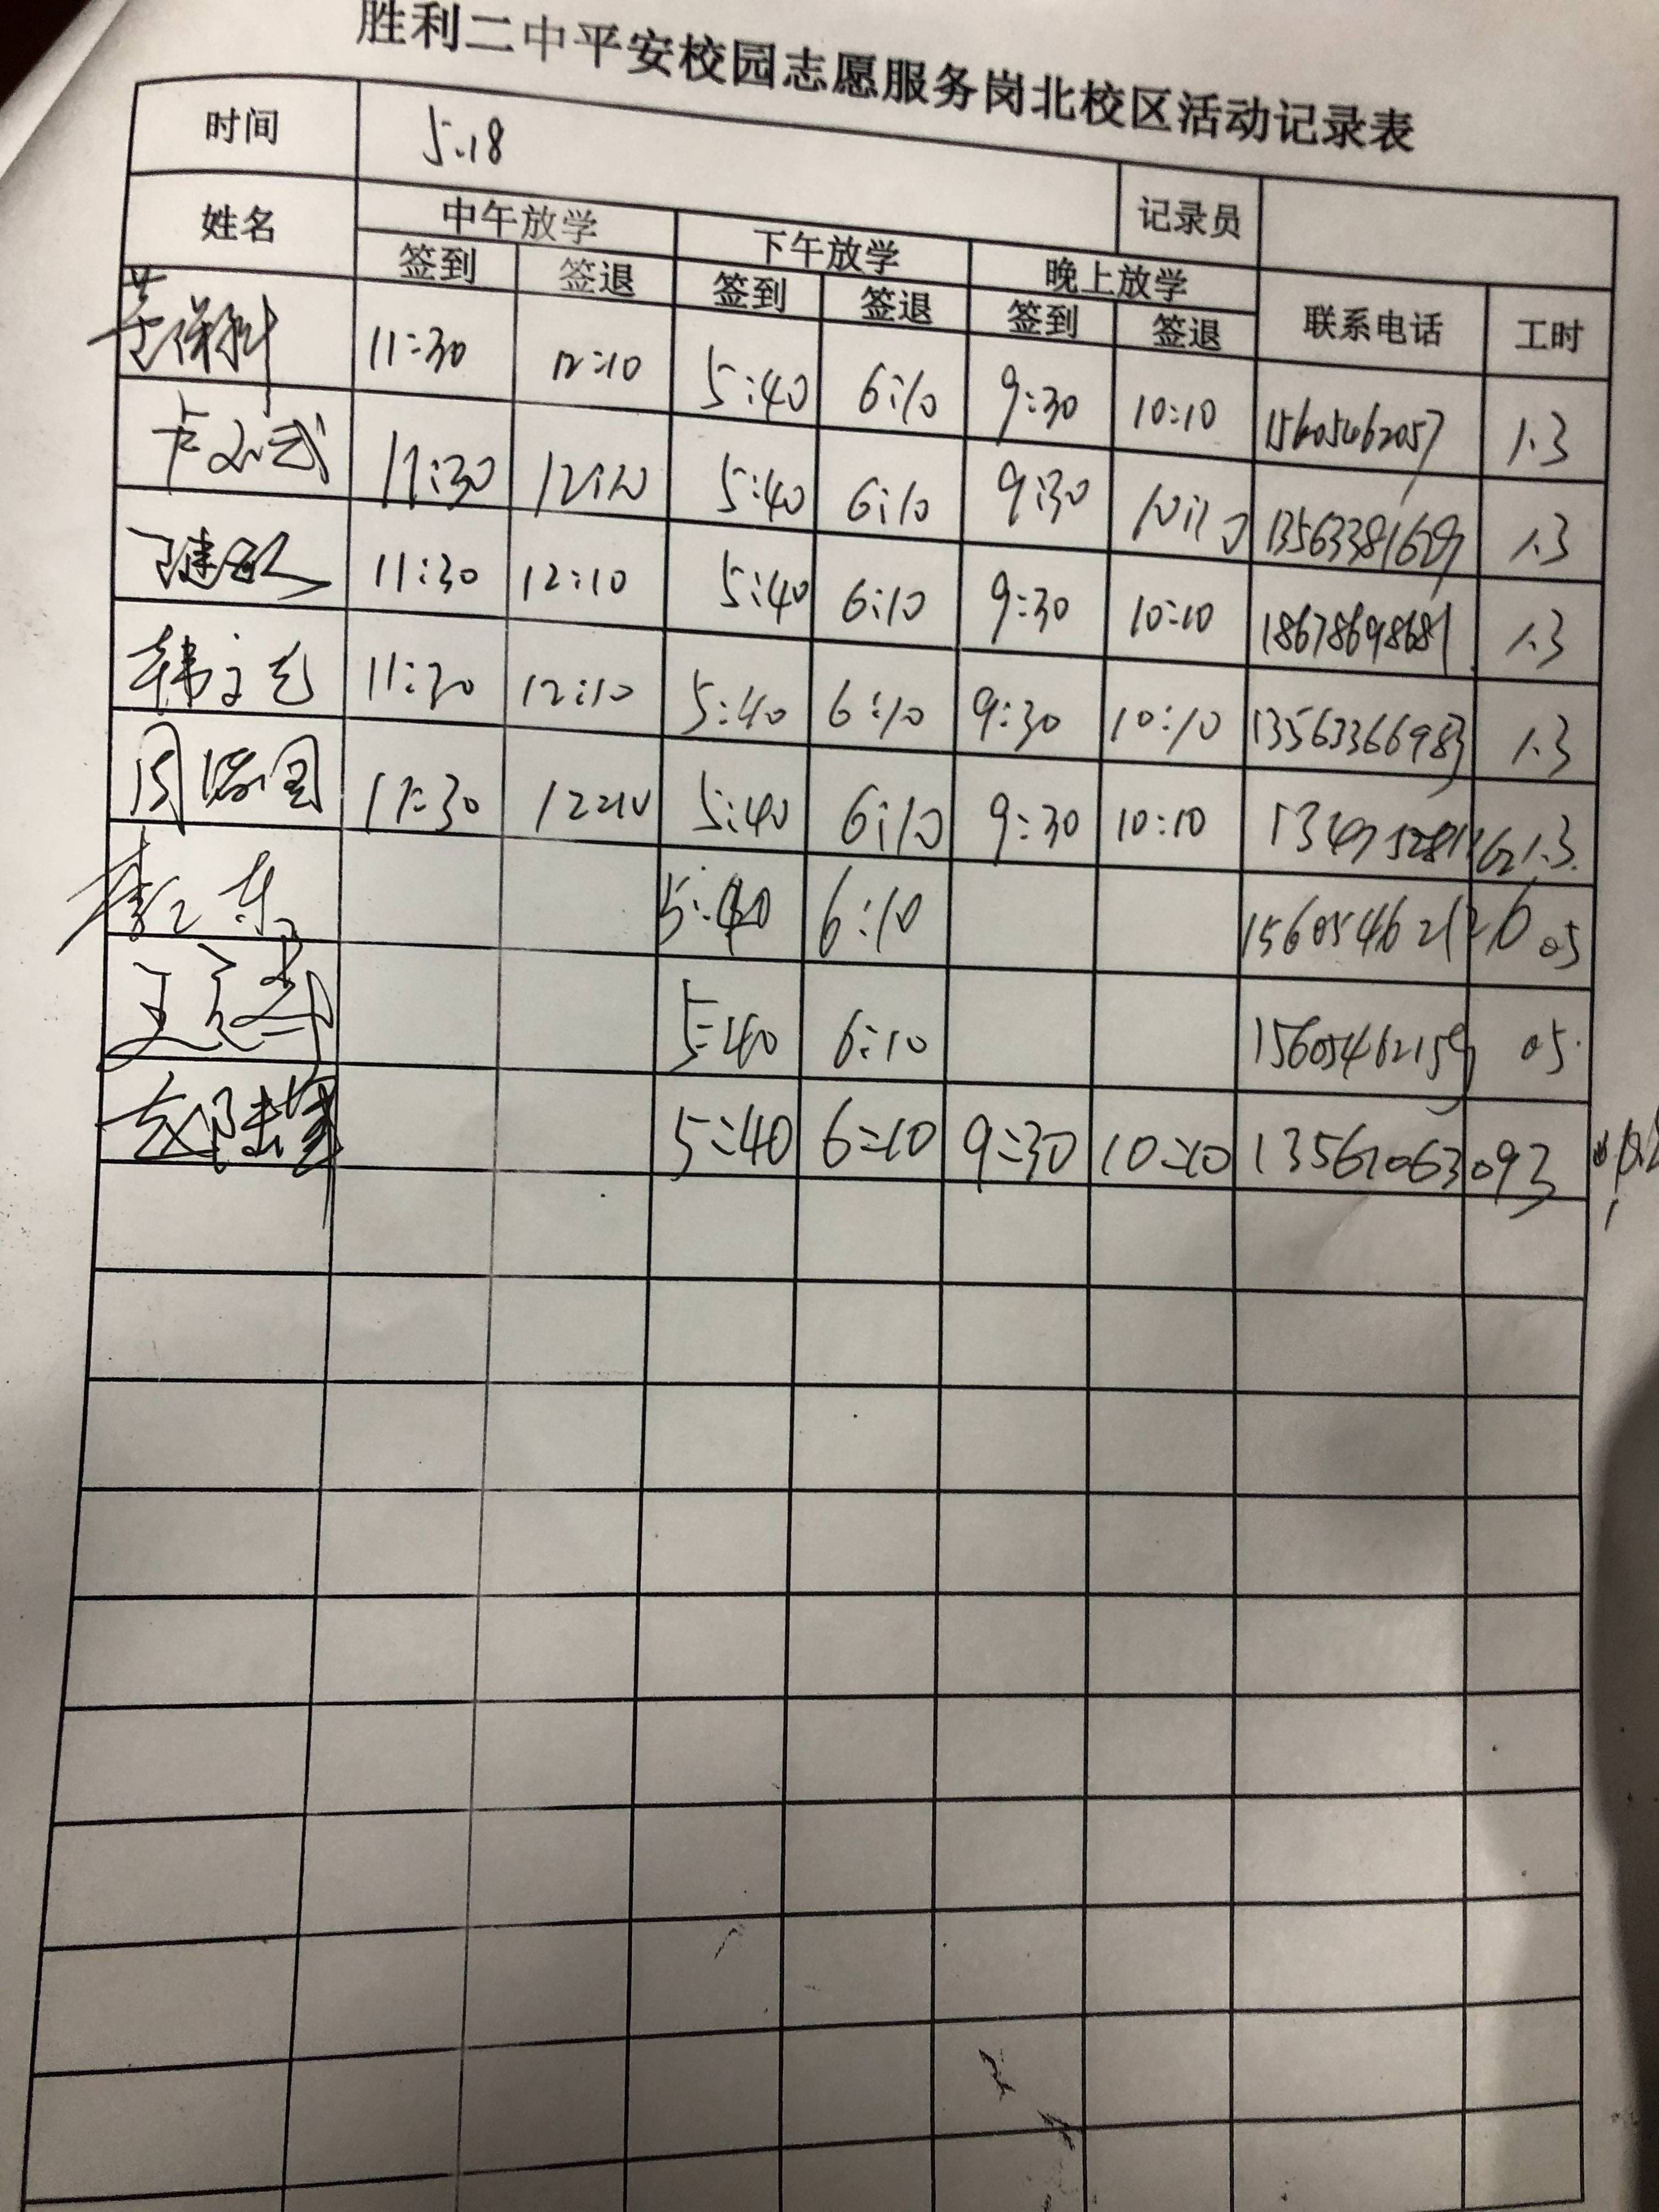 胜利二中平安校园志愿服务岗北校区活动记录表
时间 5.18 记录员
姓名 中午放学 下午放学 晚上放学 联系电话 工时
签到 签退 签到 签退 签到 签退
11:30 12:10 5:40 6:10 9:30 10:10 15605462057 1.3
11:30 12:10 5:40 6:10 9:30 10:10 13563381629 1.3
11:30 12:10 5:40 6:10 9:30 10:10 18678698681 1.3
韩文光 11:30 12:10 5:40 6:10 9:30 10:10 13563366983 1.3
11:30 12:10 5:40 6:10 9:30 10:10 1.3
5:40 6:10 15605462126 05
5:40 6:10 15605462159 05
5:40 6:10 9:30 10:10 13561063093